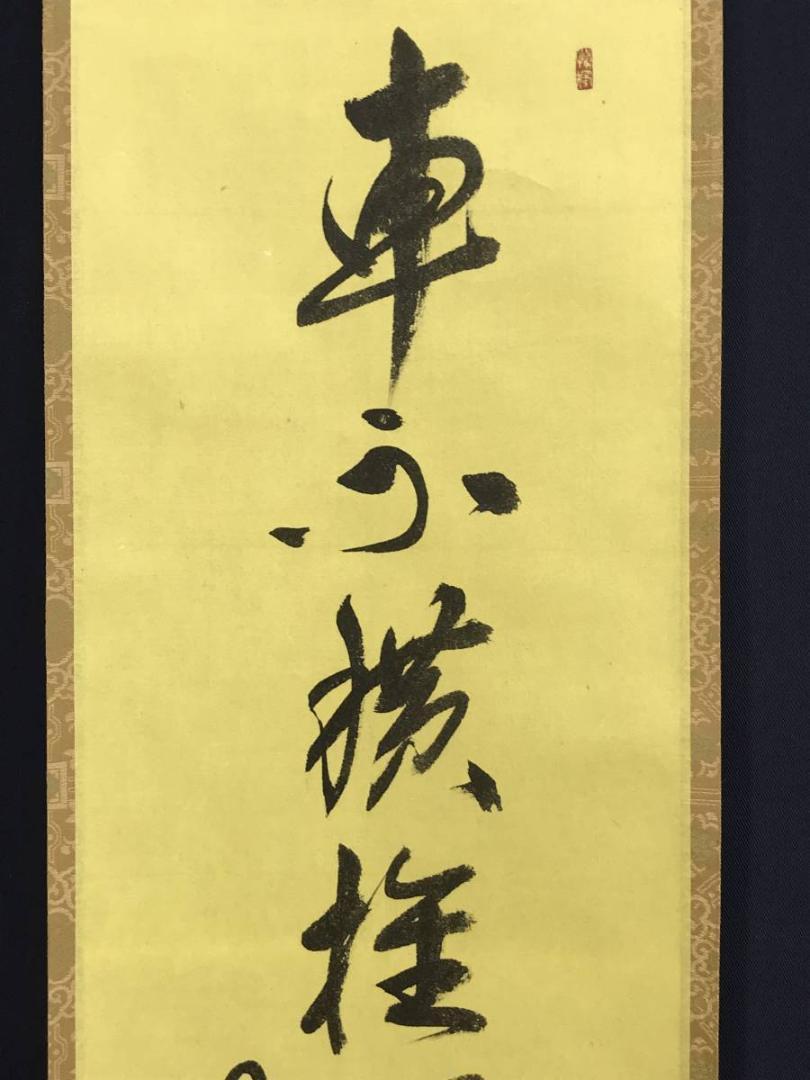 車不横推